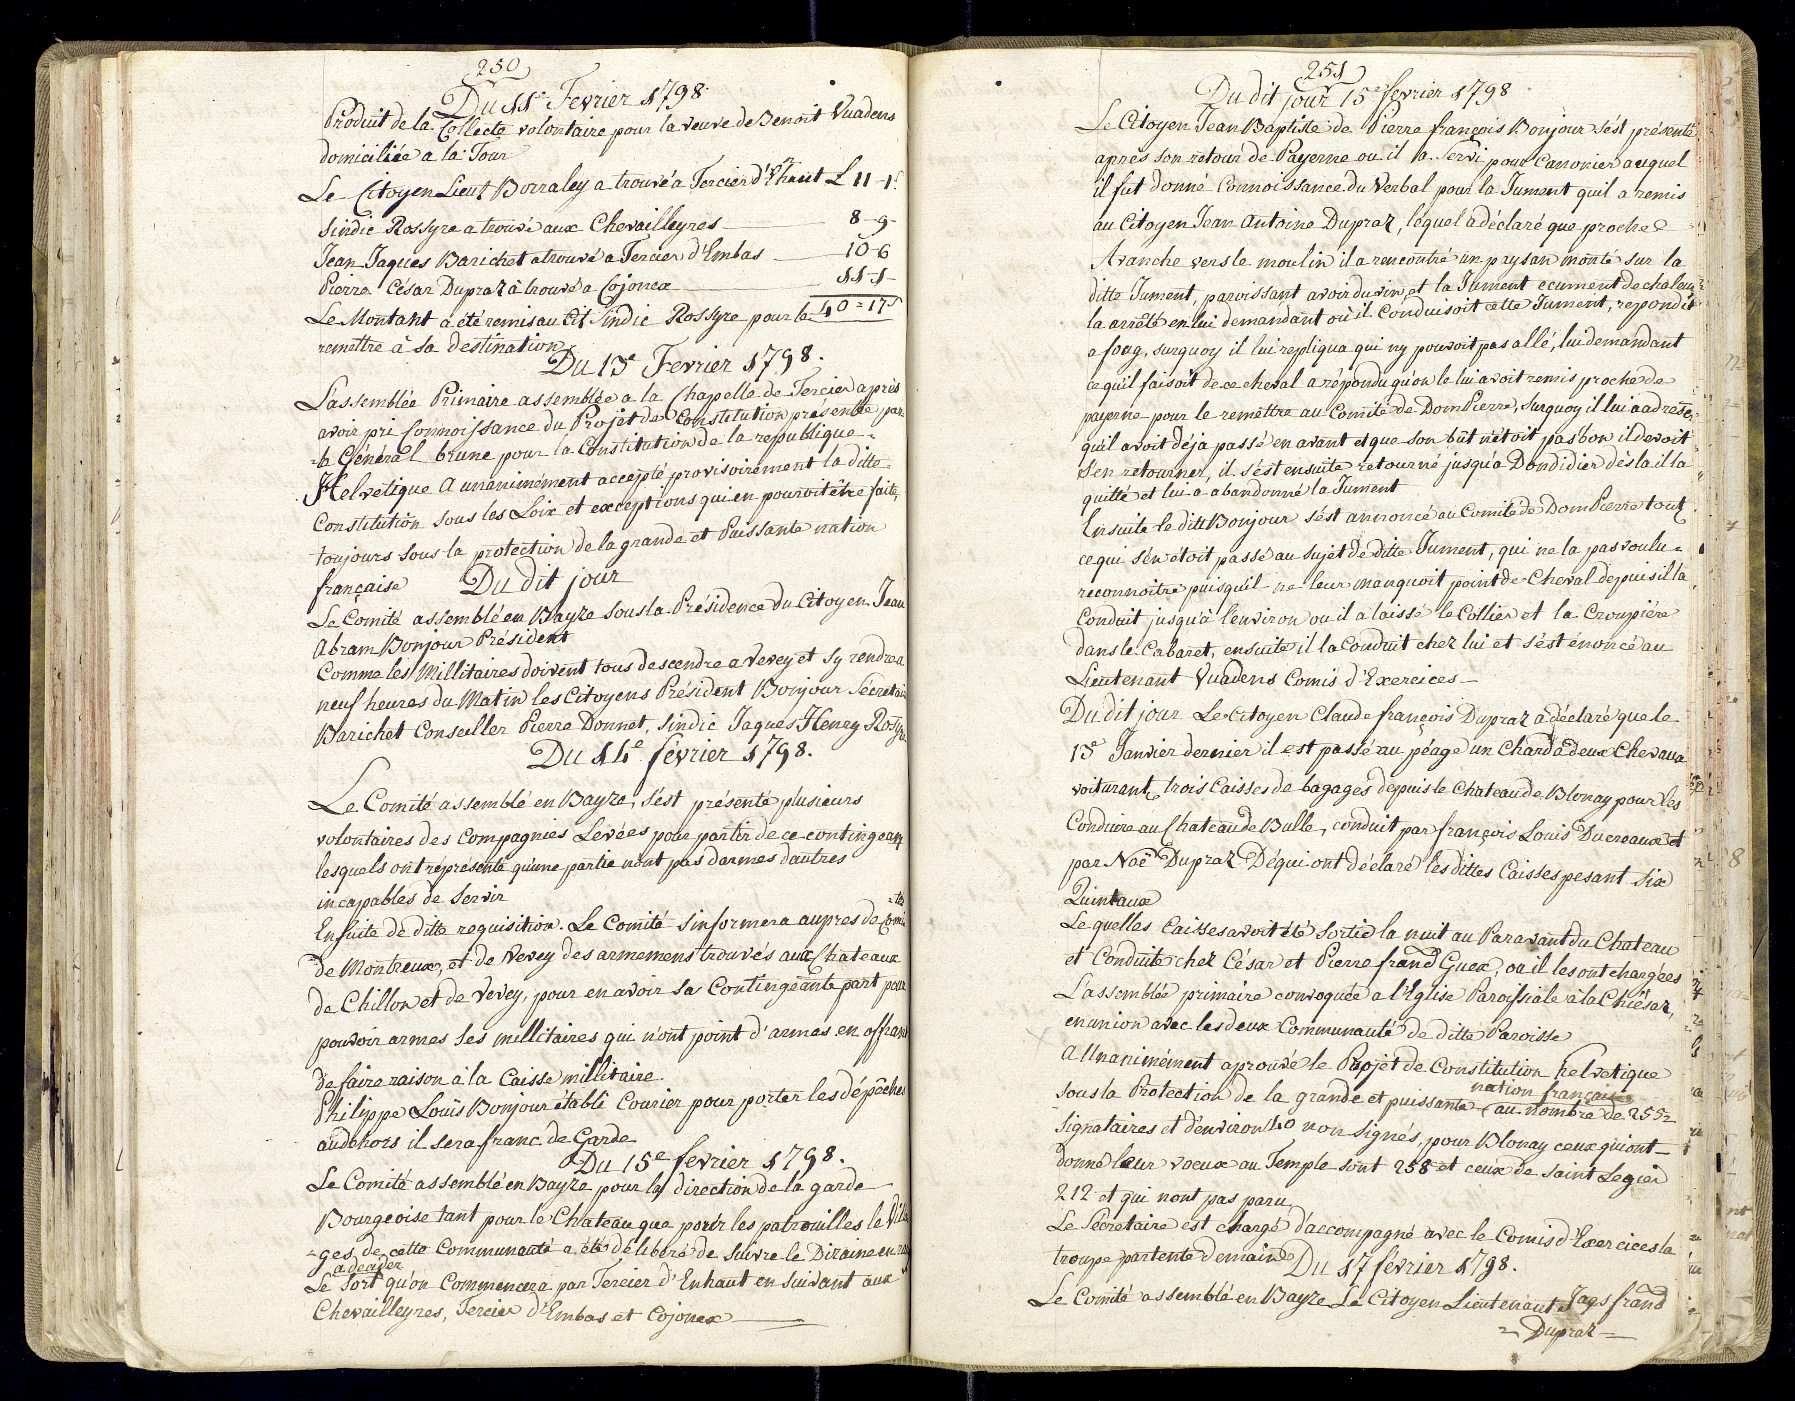 250
Du 11.e Fevrier 1798.
Produit de la Collecte volontaire pour la veuve de Benoit Vuadens
domiciliée a la Tour
Le Citoyen Lieut Borraley a trouvé a Tercier d'Enhaut L 11-1
Sindic Rossyre a trouvé aux Chevailleyres 8-9-
Jean Jaques Barichet a trouvé a Tercier d'Embas 10-6
Pierre César Dupraz à trouvé a Cojonex 11-1-
Le Montant a été remis au Cit Sindic Rossyre pour le 40=17
remettre à sa destination
Du 13.e Fevrier 1798.
L'assemblée Primaire assemblée a la Chapelle de Tercier après
avoir pri Connoissance du Projet de Constitution presentée par
le Général brune pour la Constitution de la republique
Helvetique a unanimément accepté provisoirement la ditte
Constitution sous les Loix et exceptions qui en pourroit être faite,
toujours sous la protection de la grande et Puissante nation
française Du dit jour
Le Comité assemblé en Bayze sous la Présidence du Citoyen Jean
Abram Bonjour Président
Comme les Millitaires doivent tous descendre a Vevey et s'y rendre a
neuf heures du Matin les Citoyens Président Bonjour Sécretair
Barichet Conseiller Pierre Donnet, Sindic Jaques Henry Rossyre
Du 14.e fevrier 1798.
Le Comité assemblé en Bayze, s'ést présenté plusieurs
volontaires des Compagnies Levées pour partir de ce contingeant
lesquels ont représenté qu'une partie n'ont pas d'armes d'autres
incapables de Servir
Ensuite de ditte requisition. Le Comité s'informera aupres de Comi=tés
de Montreux, et de Vevey des armemens trouvés aux Chateaux
de Chillon et de Vevey, pour en avoir sa Contingeante part pour
pouvoir armes ses millitaires qui n'ont point d'armes en offrant
de faire raison à la Caisse millitaire
Philippe Louis Bonjour établi Courier pour porter les dépêches
au dehors il sera franc de Garde
Du 15.e fevrier 1798.
Le Comité assemblé en Bayze pour la direction de la garde
Bourgeoise tant pour le Chateau que pour les patrouilles le Vila
-ges de cette Communauté a été délibéré de suivre le Dizaine en
a decider
Le Sort qu'on Commencera par Tercier d'Enhaut en suivant aux
Chevailleyres, Tercier d'Embas et Cojonex
251
Du dit jour 15.e fevrier 1798
Le Citoyen Jean Baptiste de Pierre françois Bonjour s'ést présenté
apres son retour de Payerne ou il a Servi pour Canonier auquel
il fut donné Connoissance du Verbal pour la Jument quil a remis
au Citoyen Jean Antoine Dupraz, lequel a déclaré que proche
Avanche vers le moulin il a rencontré un paysan monté sur la
ditte Jument, paroissant avoir du vin, et la Jument ecument de chaleur
la arrêté en lui demandant où il Conduisoit cette Jument, repondit
a foug, surquoy il lui repliqua qui ny pouvoit pas allé, lui demandant
ce qu'il faisoit de ce cheval a répondu qu'on le lui avoit remis proche de
payerne pour le remettre au Comité de DomPierre, surquoy il lui a adressé
qu'il avoit déja passé en avant et que son bût n'étoit pas bon il devoit
s'en retourner, il s'ést ensuite retourné jusqu'a Dondidier dès la il la
quitté et lui a abandonné la Jument
Ensuite le ditt Bonjour s'ést annoncé au Comité de DomPierre tout
ce qui s'en étoit passé au sujet de ditte Jument, qui ne la pas voulu
reconnoitre puisqu'il ne leur manquoit point de Cheval depuis il la
Conduit jusqu'à l'environ ou il a laissé le Collier et la Croupiére
dans le Cabaret, ensuite il la Conduit chez lui et s'ést énoncé au
Lieutenant Vuadens Comis d'Exercices
Du dit jour Le Citoyen Claude françois Dupraz a déclaré que le
13.e Janvier dernier il est passé au péage un Char à deux Chevaux
voiturant trois Caisses de bagages depuis le Chateau de Blonay pour les
Conduire au Chateau de Bulle, conduit par françois Louis Ducreaux et
par Noé Dupraz Déqui ont déclaré les dittes Caisses pesant Six
Quintaux
Lequelles Caisses avoit été sortie la nuit au Paravant du Chateau
et Conduite chez César et Pierre frand Guex, ou il les ont chargées
L'assemblée primaire convoquée a l'Eglise Paroissiale à la Chiésaz,
en union avec les deux Communauté de ditte Paroisse
a Unanimément aprouvé le Projet de Constitution helvetique
sous la Protection de la grande et puissante nation française (au nombre de 255
signataires et d'environ 40 non signés, pour Blonay ceux qui ont
donné leur voeux au Temple sont 258 et ceux de Saint Legier
212 et qui n'ont pas paru
Le Sécretaire est chargé d'accompagné avec le Comis d'Exercices la
troupe partente demain Du 17 fevrier 1798.
Le Comité assemblé en Bayze Le Citoyen Lieutenant Jaqs frand
Dupraz